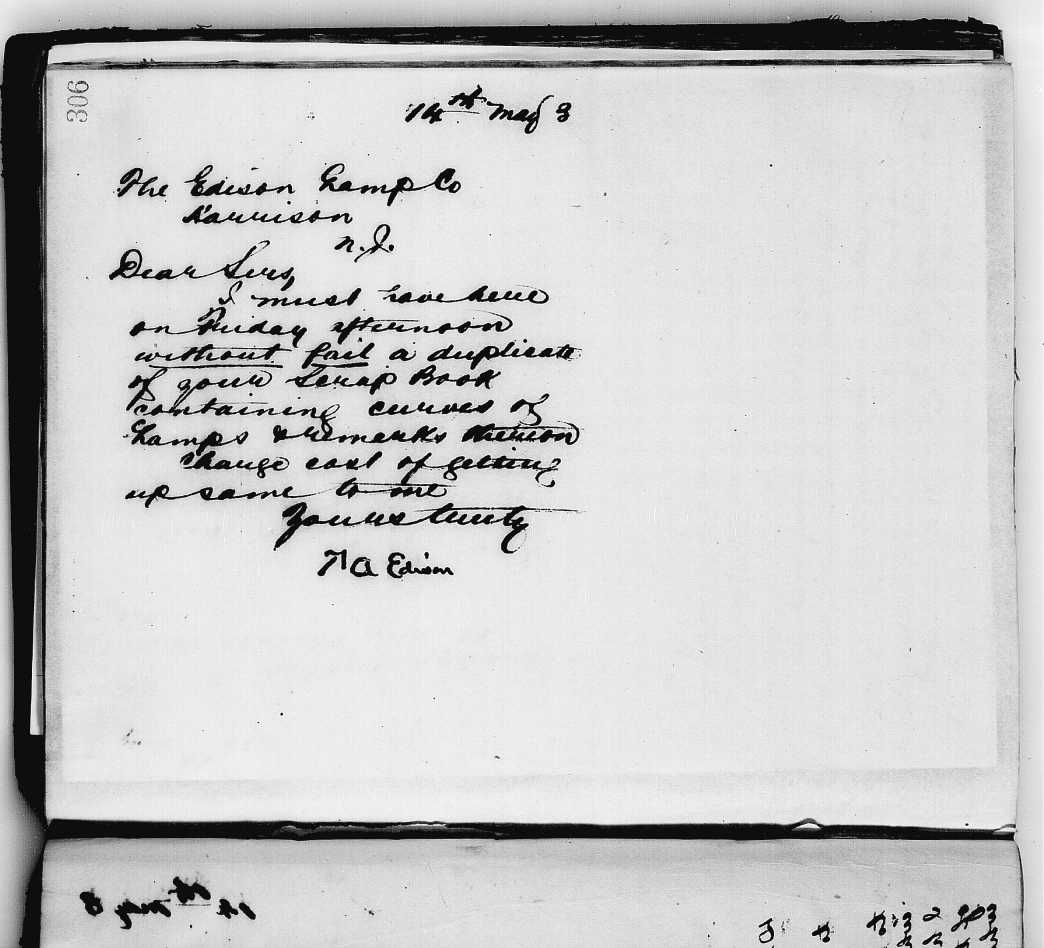 306
14th May 3
The Edison Lamp Co
Harrison
N.J.
Dear Sirs,
I must have here
on Friday afternoon
without fail a duplicate
of your Scrap Book
containing curves of
Lamps & remarks thereon
Charge cost of getting
up same to me
Yours truly
T A Edison
14th May 3